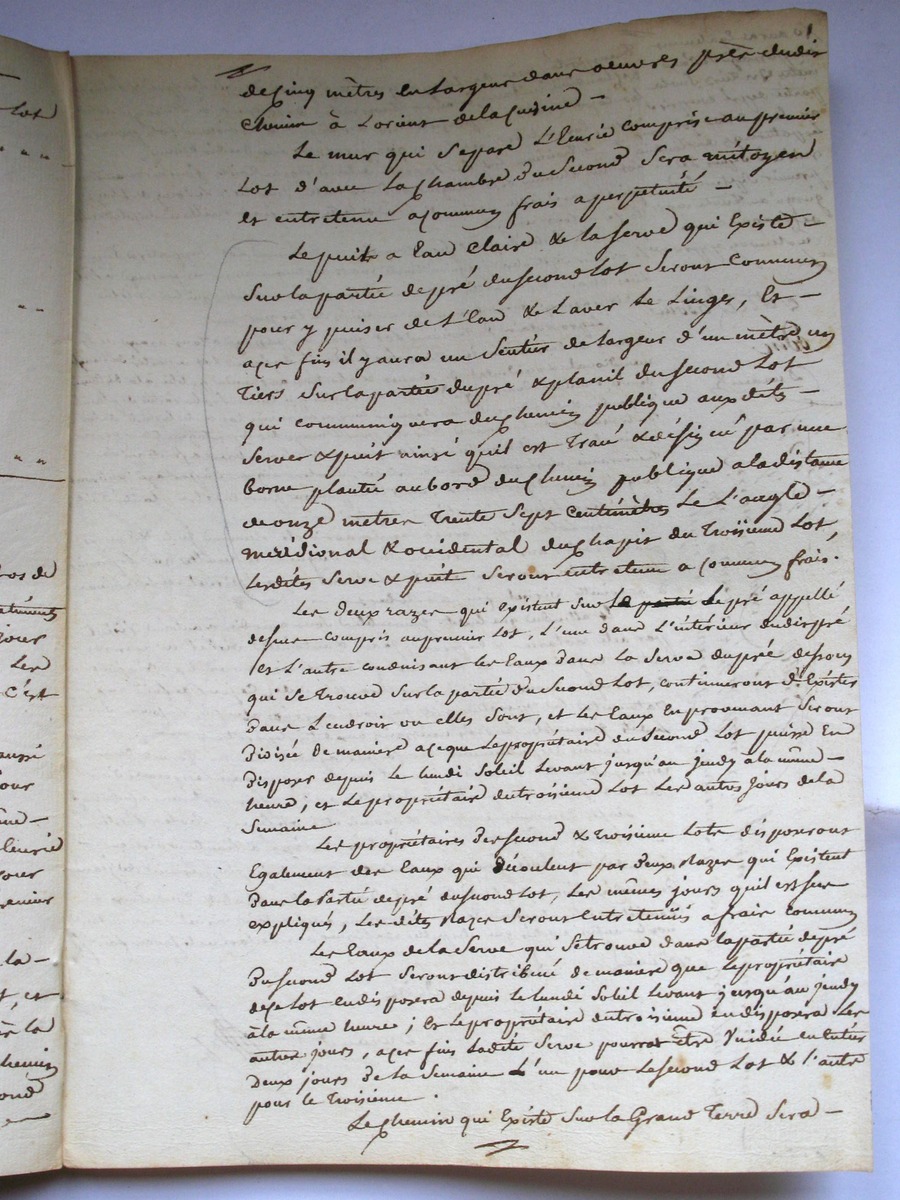 de Cinq mètres en Largeur dans oeuvres près dudit
Chemin à Lorient de la Cuisine —
Le mur qui Separe L'Ecurie comprise au premier
Lot d'avec La Chambre Du Second Sera mitoyen
et entretenu a Commun frais a perpetuité —
Le puit a Eau Claire & la Serve qui Existe —
Sur la partie de pré du Second Lot Seront Communs
pour y puiser de L'Eau & Laver Le Linges, Et —
a ces fins il y aura un Sentier de largeur d'un mètre un
Tiers Sur la partie du pré & planil du Second Lot
qui communiquera du Chemin publique aux dits —
Serves & puit ainsi qu'il est Tracé & désigné par une
borne plantée au bord du Chemin publique a la distance
de onze mètres Trente Sept Centimètres de L'angle —
meridional & occidental du Chapit du Troisieme Lot,
Lesdites Serve & puit Seront entretenu a Commun frais.
Les deux razes qui existent sur le pré appellé
dessus compris au premier Lot, L'une dans L'intérieur dudit pré
Et L'autre conduisant les Eaux Dans La Serve du pré dessous
qui Se Trouve Sur la partie Du Second Lot, continueront d'Existés
Dans L'endroit ou elles Sont, et Les Eaux En provenant Seront
Divisée De maniere a ce que Le propriétaire du Second Lot puisse En
Disposer depuis Le lundi Soleil Levant jusqu'au jeudy à la même —
heure, et Le propriétaire du troisieme Lot Les autres Jours de la
Semaine
Les propriétaires Des Second & Troisieme Lots disposeront
Egalement des Eaux qui Découlent par Deux Razes qui Existent
Dans La Partie de pré du Second Lot, Les mêmes jours qu'il est Sus
expliqués, Les dites Razes Seront Entretenüs a frais Commun
Les Eaux de la Serve qui Se trouve dans la partie de pré
Du Second Lot Seront distribué de maniere que Le propriétaire
de ce Lot en disposera depuis Le lundi Soleil Levant jusqu'au jeudy
à la même heure ; Et Le propriétaire du troisieme en disposera Les
autres jours, a ces fins Ladite Serve pourra être Vuidée en
Deux jours De La Semaine L'un pour Le Second Lot & L'autre
pour Le Troisieme.
Le Chemin qui Existe Sur la Grand Terre Sera —